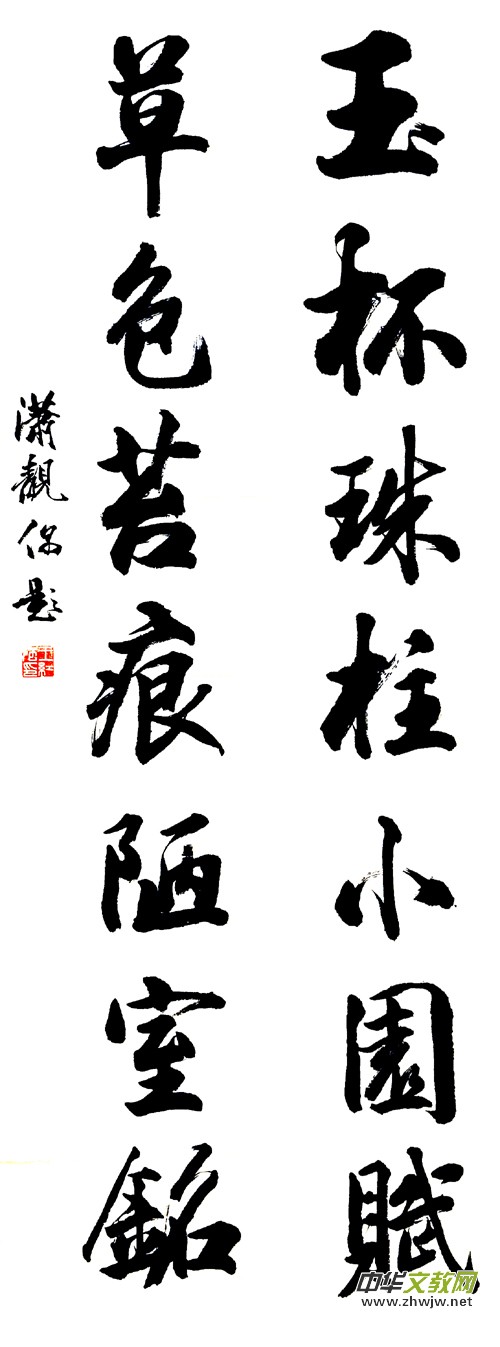 玉杯珠柱小園賦
草色苔痕陋室銘
瀟靚偶題
中华文教网
www.zhwjw.net